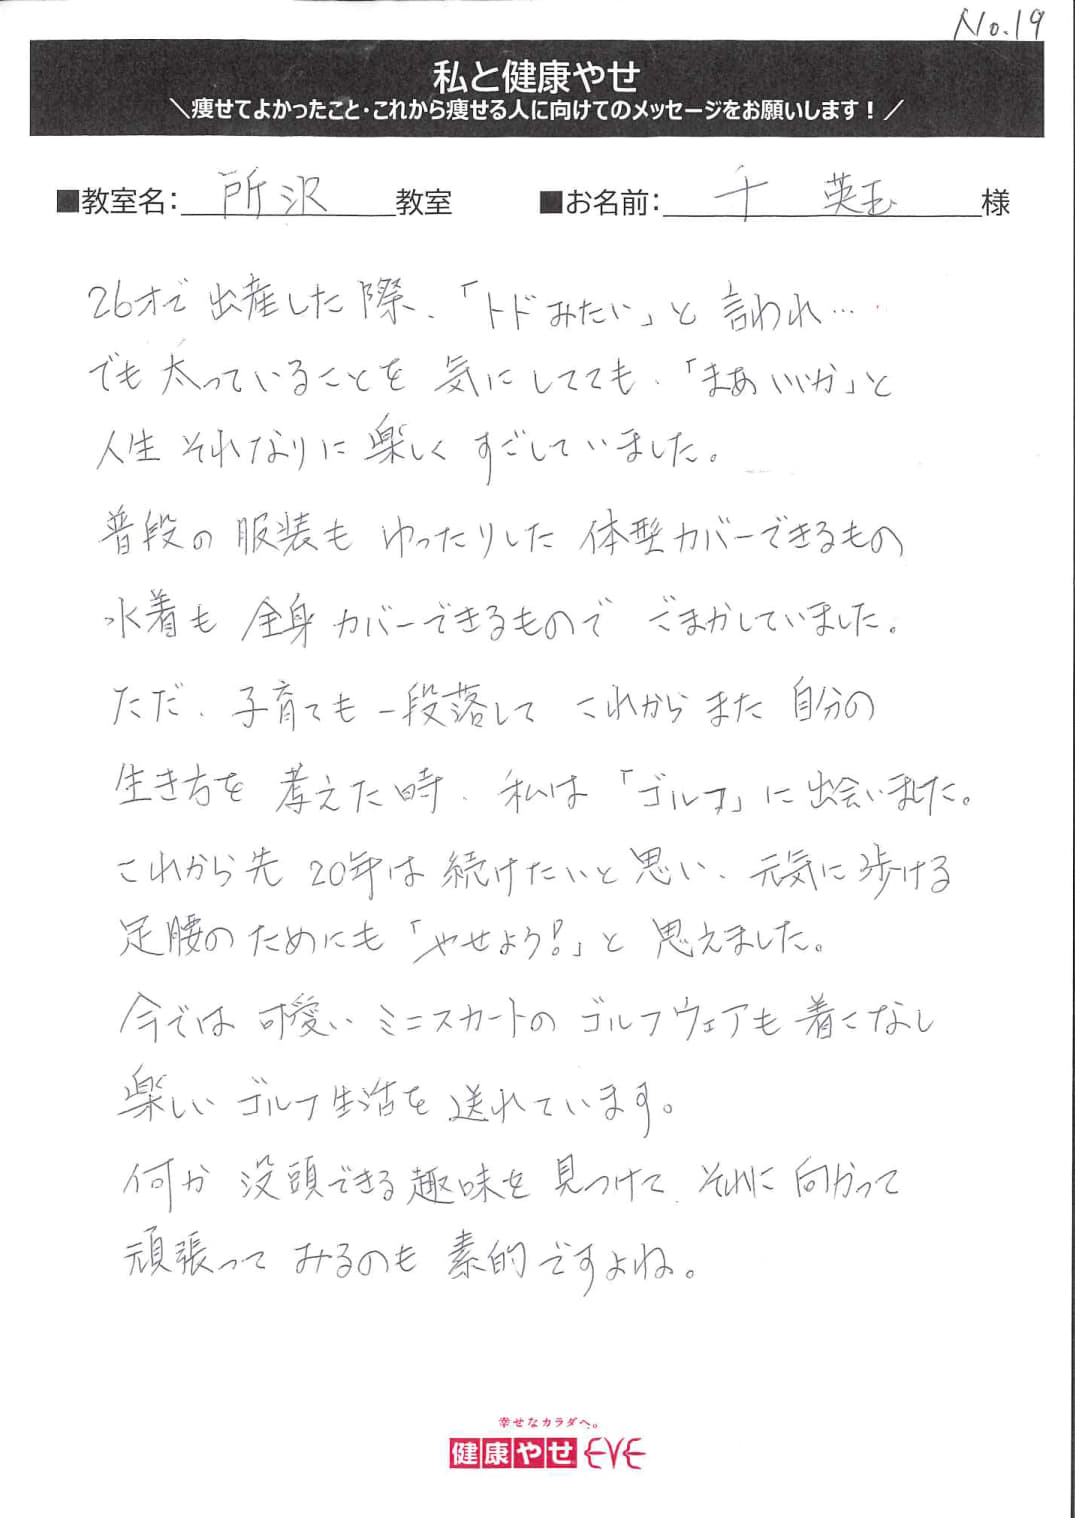 No.19
私と健康やせ
＼痩せてよかったこと・これから痩せる人に向けてのメッセージをお願いします！／
■教室名： 所沢 教室 ■お名前： 千 英玉 様
26才で 出産した際、「トドみたい」と 言われ…
でも 太っていることを 気にしてても、「まあいいか」と
人生 それなりに 楽しく すごしていました。
普段の 服装も ゆったりした 体型カバーできるもの
水着も 全身 カバーできるもので ごまかしていました。
ただ、子育ても 一段落して これから また 自分の
生き方を 考えた時、私は 「ゴルフ」に 出会いました。
これから先 20年は 続けたいと 思い、元気に 歩ける
足腰の ためにも 「やせよう！」と 思えました。
今では 可愛い ミニスカートの ゴルフウェアも 着こなし
楽しい ゴルフ生活を 送れています。
何か 没頭できる 趣味を 見つけて、それに 向かって
頑張って みるのも 素的ですよね。
幸せなカラダへ。
健康やせ EVE